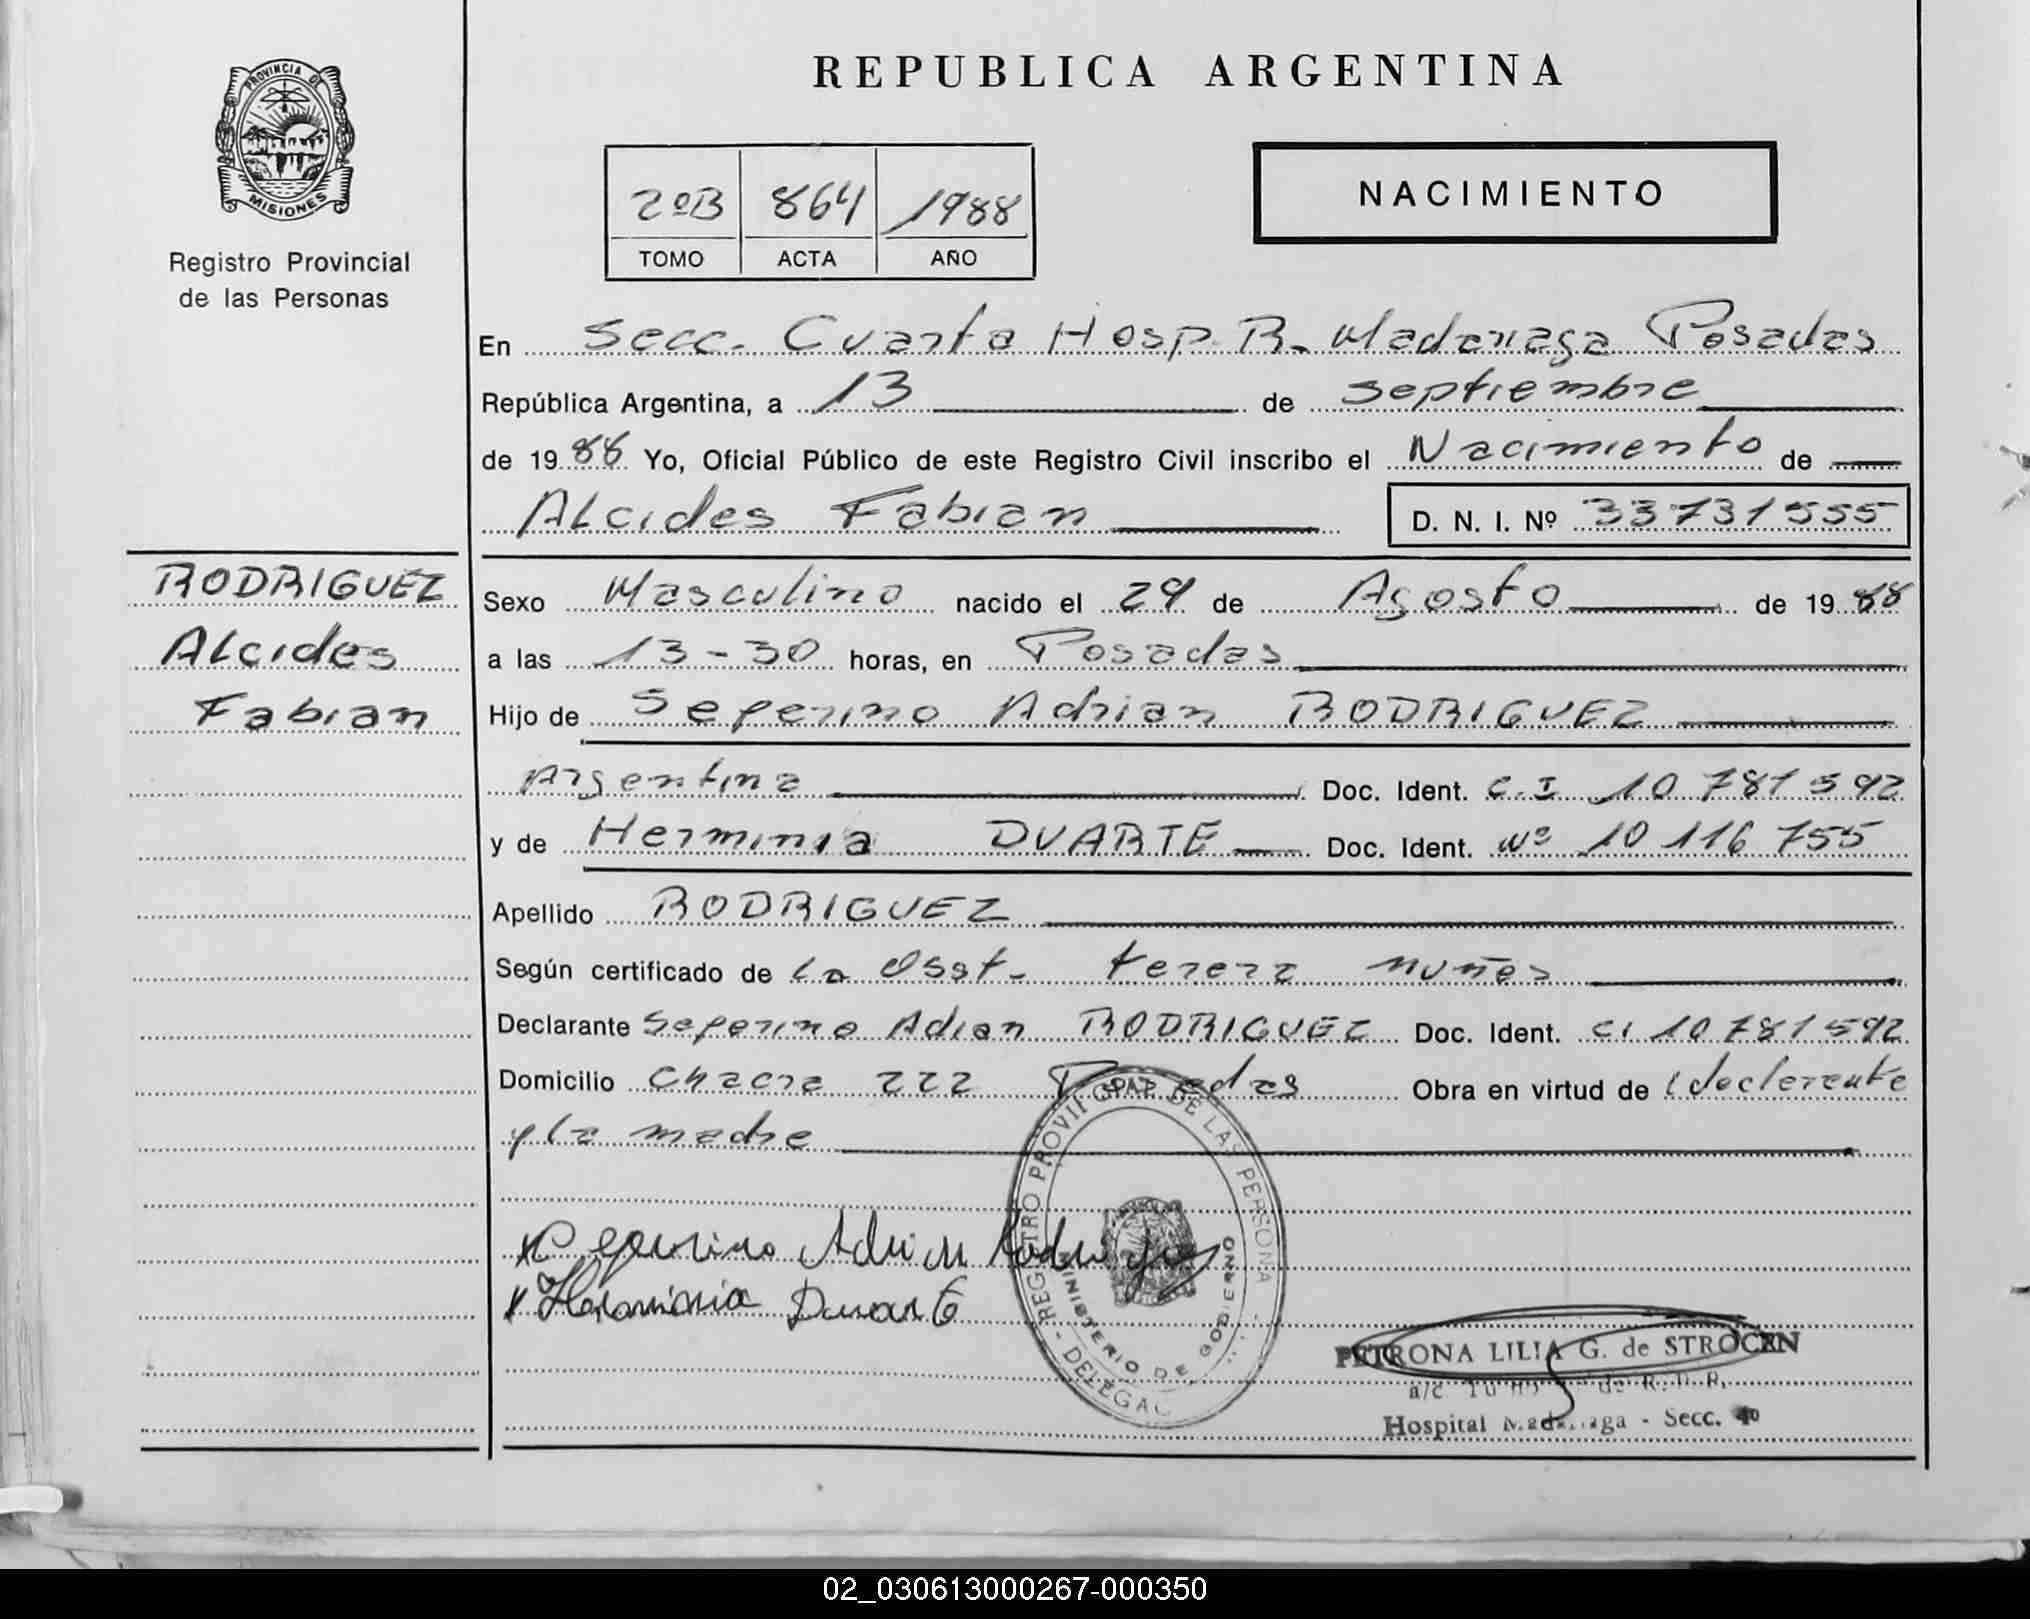 PROVINCIA DE
MISIONES
Registro Provincial
de las Personas
REPUBLICA ARGENTINA
2ºB 864 1988
TOMO ACTA AÑO
NACIMIENTO
En Secc. Cuarta Hosp. R. Madariaga Posadas
República Argentina, a 13 de septiembre
de 1988 Yo, Oficial Público de este Registro Civil inscribo el Nacimiento de
Alcides Fabian D. N. I. Nº 33731555
RODRIGUEZ
Alcides
Fabian
Sexo Masculino nacido el 29 de Agosto de 1988
a las 13-30 horas, en Posadas
Hijo de Seferino Adrian RODRIGUEZ
Argentina Doc. Ident. C.I 10 781 592
y de Herminia DUARTE Doc. Ident. Nº 10 116 755
Apellido RODRIGUEZ
Según certificado de la Obst. nuñez
Declarante Seferino Adrian RODRIGUEZ Doc. Ident. CI 10 781 592
Domicilio Chacra 222 Posadas Obra en virtud de declarante
y la madre
REGISTRO PROVINCIAL DE LAS PERSONAS
MINISTERIO DE GOBIERNO
Seferino Adrian Rodriguez
Herminia Duarte
PETRONA LILIA G. de STROCEN
Hospital Madariaga - Secc. 4º
02_030613000267-000350